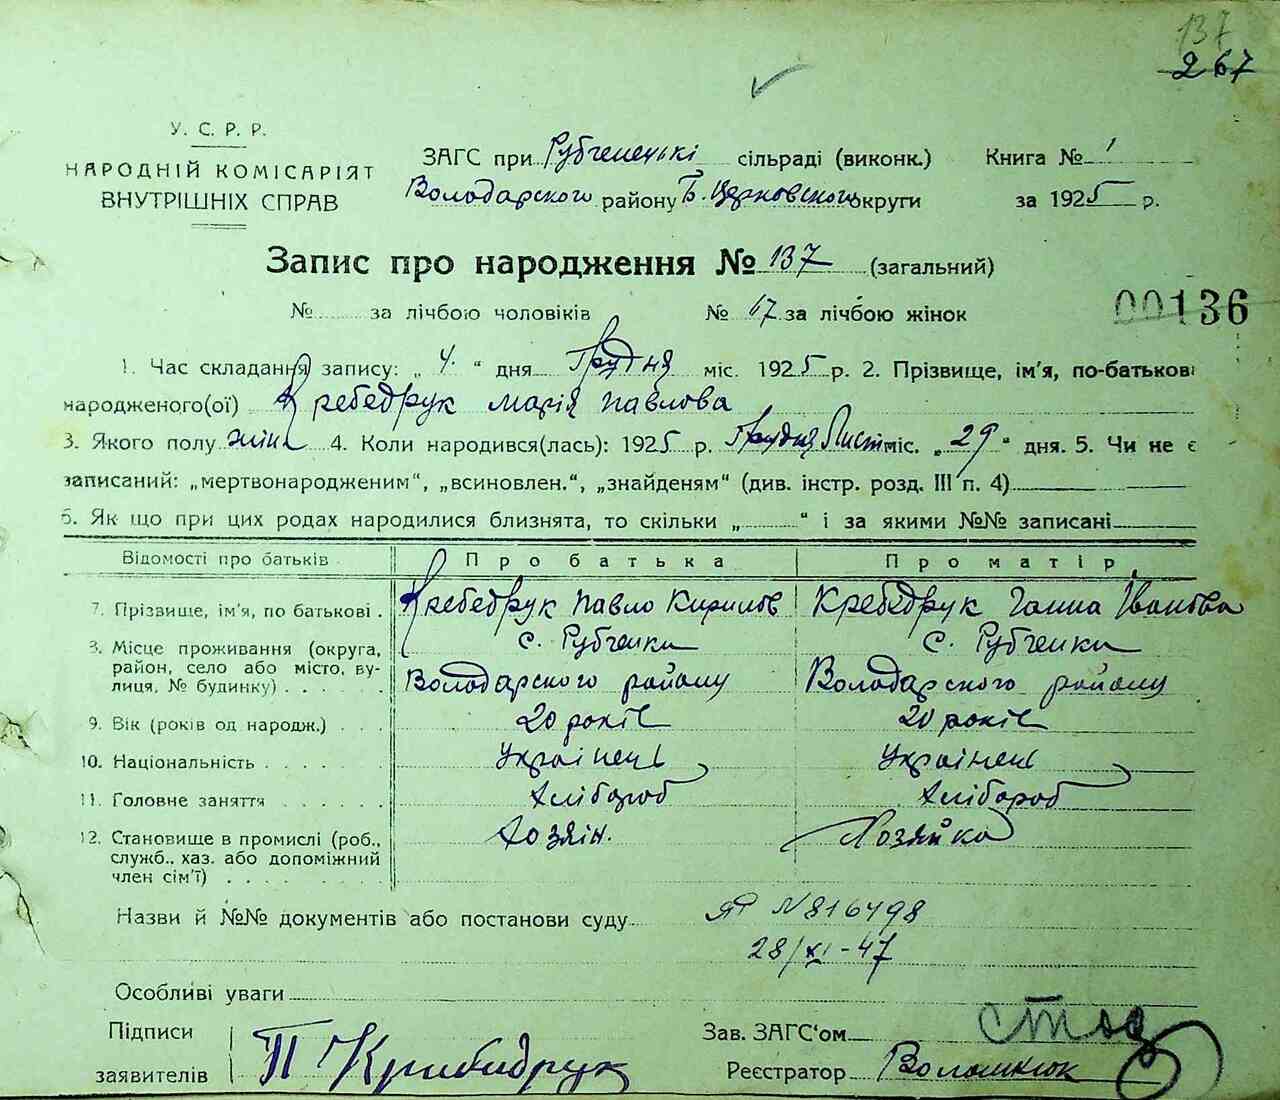 137
267
У. С. Р. Р.
НАРОДНІЙ КОМІСАРІЯТ
ВНУТРІШНІХ СПРАВ
ЗАГС при Рубченецькі сільраді (виконк.) Книга № 1
Володарского району Б. Церковского округи за 1925 р.
Запис про народження № 137 (загальний)
№ за лічбою чоловіків № 67 за лічбою жінок
00136
1. Час складання запису: „ 4 “ дня Грудня міс. 1925 р. 2. Прізвище, ім'я, по-батькові
народженого(ої) Кребедрук Марія Павлова
3. Якого полу жіни 4. Коли народився(лась): 1925 р. Грудня Лист міс. „ 29 “ дня. 5. Чи не є
записаний: „мертвонародженим“, „всиновлен.“, „знайденям“ (див. інстр. розд. III п. 4)
6. Як що при цих родах народилися близнята, то скільки „ “ і за якими №№ записані
Відомості про батьків Про батька Про матір
7. Прізвище, ім'я, по батькові . Кребедрук Павло Кирилов Кребедрук Ганна Іванова
8. Місце проживання (округа, с. Рубченки с. Рубченки
район, село або місто, ву-
лиця, № будинку) . . . . . Володарского району Володарского району
9. Вік (років од народж.) . . . 20 років 20 років
10. Національність . . . . . . Українець Українець
11. Головне заняття . . . . . . Хлібороб Хлібороб
12. Становище в промислі (роб., Хозяін. Хозяйка
служб., хаз. або допоміжний
член сім'ї) . . . . . . . .
Назви й №№ документів або постанови суду ЯР N 816498
28/XI-47
Особливі уваги
Підписи Зав. ЗАГС'ом
заявителів П Крибидрук Реєстратор Волошнюк